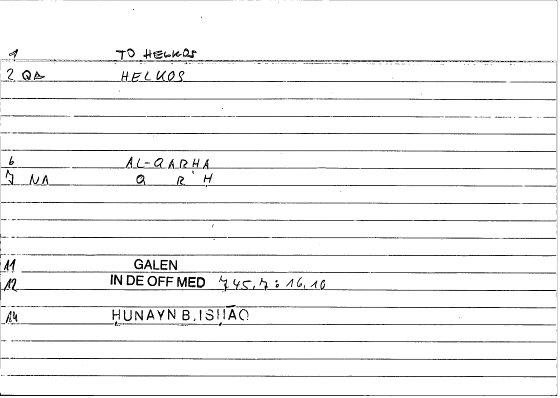 1 TO HELKOS
2 QA HELKOS
6 AL-QARHA
7 NA Q R Ḥ
11 GALEN
12 IN DE OFF MED 745,7 : 16,10
14 ḤUNAYN B. ISḤĀQ